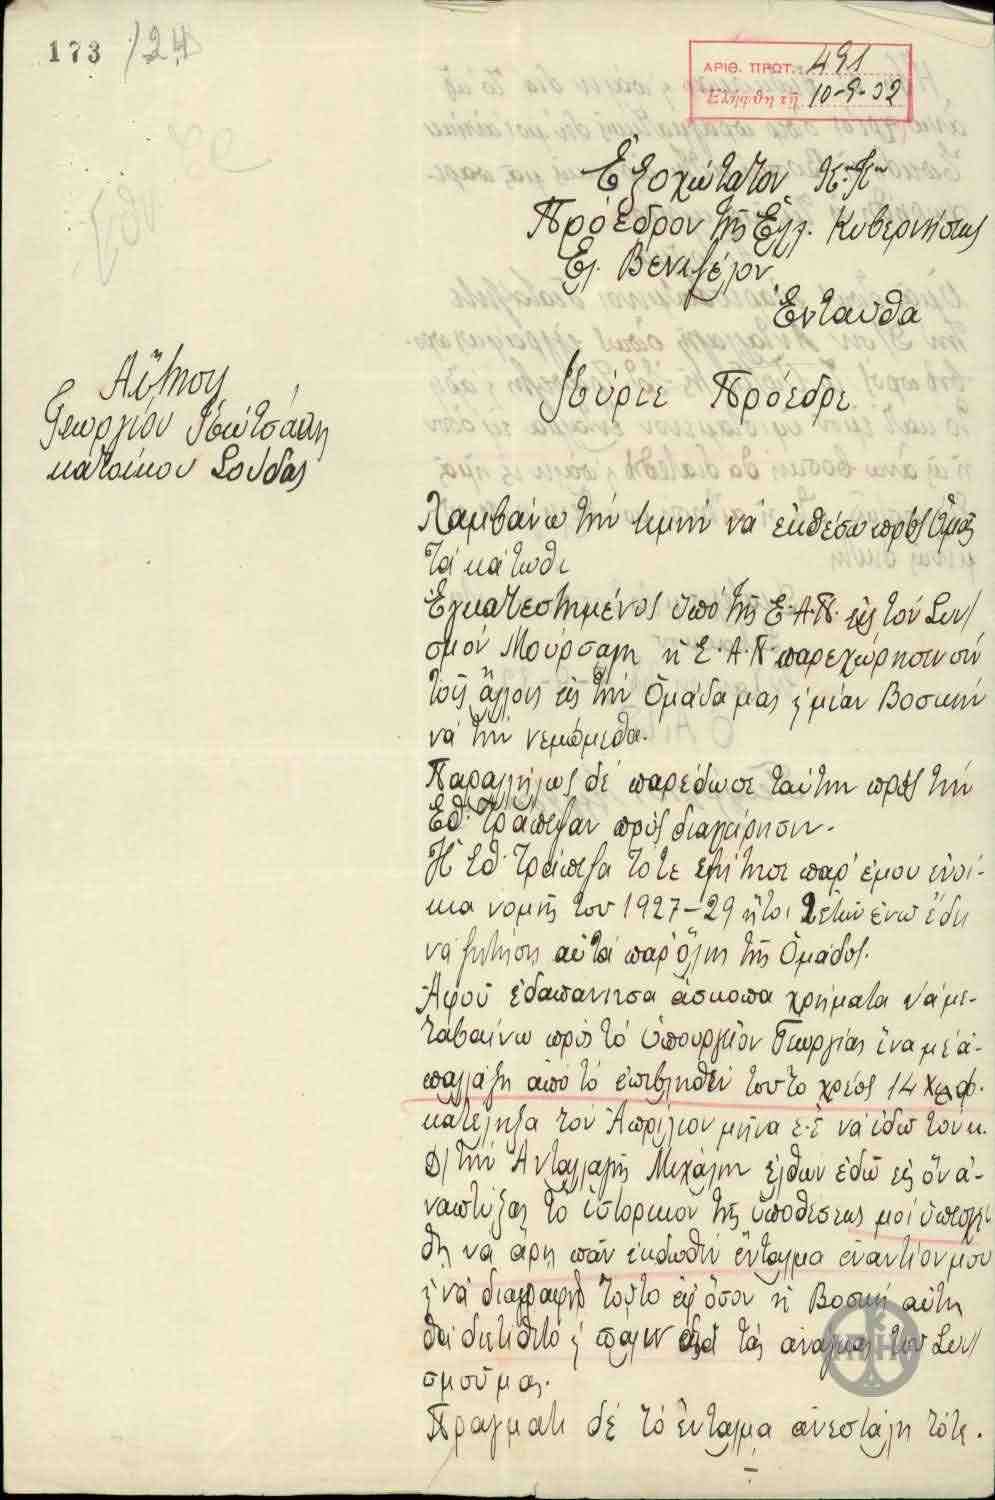 173 /24
ΑΡΙΘ. ΠΡΩΤ. 491
Ελήφθη τῇ 10-9-32
Ἐξοχώτατον κ. κον
Πρόεδρον τῆς Ἑλλ. Κυβερνήσεως
Ελ. Βενιζέλον
Ἐνταῦθα
Αἴτησις
Γεωργίου Κωτσάπη
κατοίκου Σούδας
Κύριε Πρόεδρε
Λαμβάνω τὴν τιμὴν νὰ ἐκθέσω πρὸς Ὑμᾶς
τὰ κάτωθι
Ἐγκατεστημένος ὑπὸ τῆς Ε.Α.Π. εἰς τὸν Συνι
σμὸν Μούρσαλη ἡ Ε.Α.Π παρεχώρησεν σὺν
τοῖς ἄλλοις εἰς τὴν Ὁμάδα μας καὶ μίαν Βοσκὴν
νὰ τὴν νεμώμεθα.
Παραλλήλως δὲ παρέδωσε ταύτην πρὸς τὴν
Ἐθ. Τράπεζαν πρὸς διαχείρησιν.
Ἡ Ἐθ. Τράπεζα τότε ἐζήτησε παρ' ἐμοῦ ἐνοί-
κια νομῆς του 1927-29 ἤτοι 2 ἐτῶν ἐνῶ ἔδει
νὰ ζητήσῃ αὐτὰ παρ' ὅλης τῆς Ὁμάδος.
Ἀφοῦ ἐδαπάνησα ἄσκοπα χρήματα νὰ με-
ταβαίνω πρὸς τὸ Ὑπουργεῖον Γεωργίας ἵνα μὲ ἀ-
παλλάξῃ ἀπὸ τὸ ἐπιβληθὲν τοῦτο χρέος 14 χιλ δρ.
κατέληξα τὸν Ἀπρίλιον μῆνα ἐ.ἔ νὰ ἰδῶ τὸν κ.
Δ/τὴν Ἀνταλλαγῆς Μιχάλην ἐλθὼν ἐδῶ εἰς ὃν ἀ-
ναπτύξας τὸ ἱστορικὸν τῆς ὑποθέσεως μοὶ ὑπεσχέ-
θη νὰ ἄρῃ πᾶν ἐκδωθὲν ἔνταλμα ἐναντίον μου
καὶ νὰ διαγραφῇ τοῦτο ἐφ' ὅσον ἡ Βοσκὴ αὕτη
θὰ διετίθετο καὶ πάλιν διὰ τὰς ἀνάγκας τοῦ Συνι
σμοῦ μας.
Πράγματι δὲ τὸ ἔνταλμα ἀνεστάλη τότε.